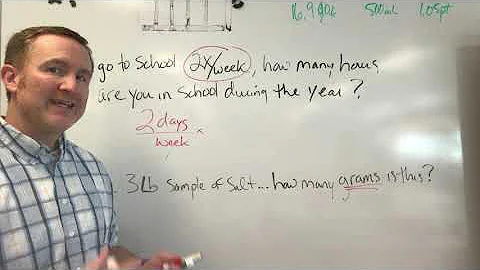 16.9 oz 500mL 1.05pt
go to School 2x/week, how many hours
are you in School during the year?
2 days
week x
3Lb Sample of Salt... how many grams is this?